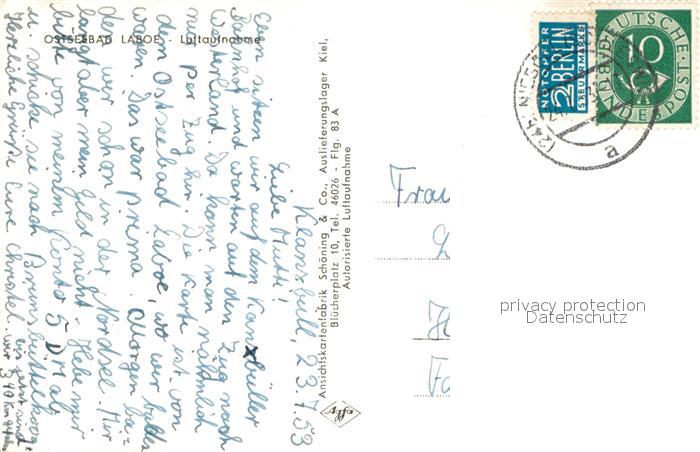 OSTSEEBAD LABOE - Luftaufnahme
Klanxbüll, 23.7.53
Liebe Mutti!
Eben sitzen wir auf dem Klanxbüller
Bahnhof und warten auf den Zug nach
Westerland. Da kann man nämlich
nur per Zug hin. Die Karte ist von
dem Ostseebad Laboe, wo wir
waren. Das war prima. Morgen
wir schon in der Nordsee. Mir
langt aber mein Geld nicht. Hebe mir
bitte von meinem Konto 5 DM ab
u. schicke sie nach Brunsbüttelkoog
Herzliche Grüße Eure Christel.
bis jetzt sind
wir 540 km
Ansichtskartenfabrik Schöning & Co., Auslieferungslager Kiel,
Blücherplatz 10, Tel. 46026 - Flg. 83 A
Autorisierte Luftaufnahme
NOTOPFER
2 BERLIN
STEUERMARKE
DEUTSCHE
BUNDESPOST
10
(24b) NIEB
e
Frau
privacy protection
Datenschutz